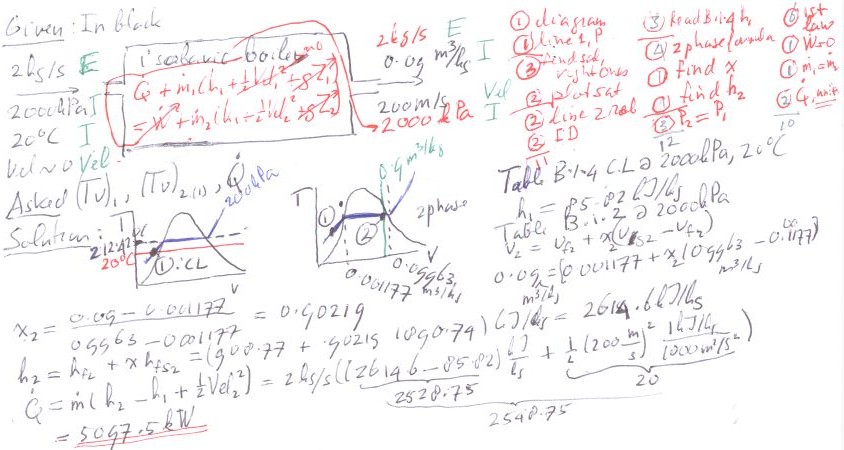 Given: In black
2kg/s E
2000kPa I
20°C I
Vel≈0 Vel
isobaric boiler
Q̇ + ṁ₁(h₁ + ½Vel₁² + gZ₁)
= Ẇ + ṁ₂(h₂ + ½Vel₂² + gZ₂)
2kg/s E
0.09 m³/kg I
200m/s Vel
2000kPa I
① diagram
① line 1, P
③ find sat,
right ones
② plot sat
② line 2 vol
② ID
11
③ Read B.1.4 h₁
④ 2 phase formula
① find x
① find h₂
③ P₂ = P₁
12
⑥ 1st
law
① Ẇ=0
① ṁ₁=ṁ₂
② Q̇, unit
10
Asked (Tv)₁, (Tv)₂, Q̇
Solution:
T
212.42°C
20°C
①: CL
2000kPa
v
T
①
②
0.9 m³/kg
2 phase
v
0.001177
0.09963
m³/kg
Table B.1.4 CL @ 2000kPa, 20°C
h₁ = 85.82 kJ/kg
Table B.1.2 @ 2000kPa
v₂ = v_f2 + x₂(v_g2 − v_f2)
0.09 m³/kg = [0.001177 + x₂(0.09963 − 0.001177)] m³/kg
x₂ = (0.09 − 0.001177)/(0.09963 − 0.001177) = 0.90219
h₂ = h_f2 + x h_fg2 = (908.77 + .90219 1890.74) kJ/kg = 2614.6 kJ/kg
Q̇ = ṁ(h₂ − h₁ + ½Vel₂²) = 2 kg/s ((2614.6 − 85.82) kJ/kg + ½(200 m/s)² 1kJ/kg / 1000 m²/s²)
2528.75
20
2548.75
= 5097.5 kW